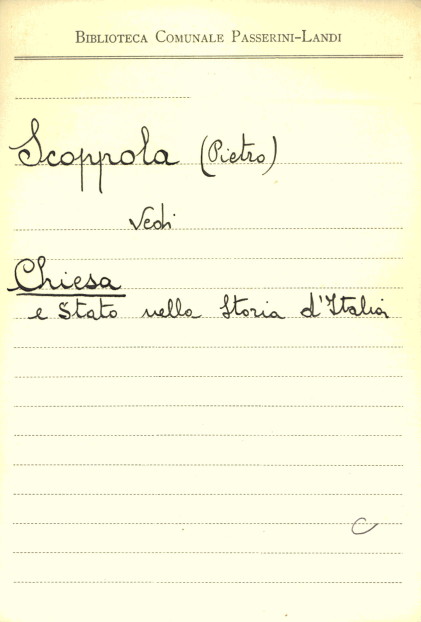 BIBLIOTECA COMUNALE PASSERINI-LANDI
Scoppola (Pietro)
Vedi
Chiesa
e Stato nella Storia d'Italia
C